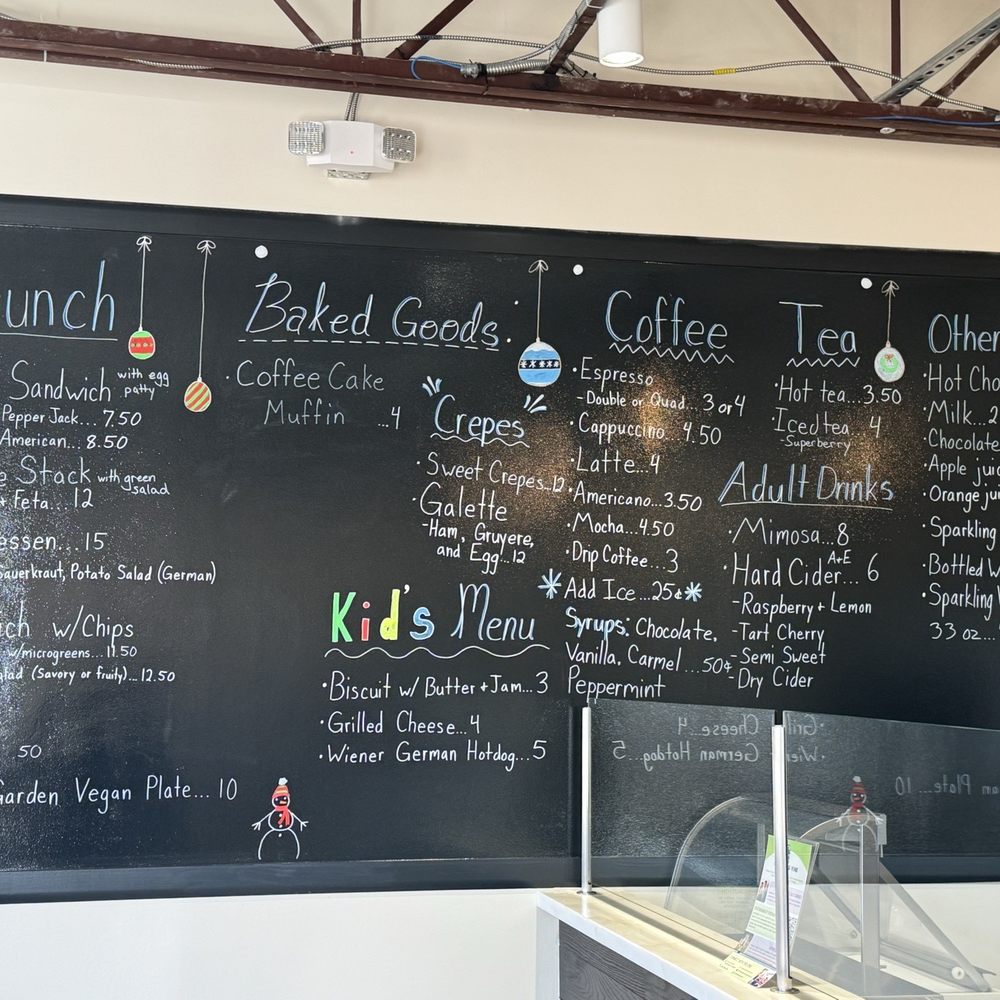 unch
Sandwich with egg patty
Pepper Jack... 7.50
American... 8.50
Stack with green salad
+ Feta... 12
essen... 15
Sauerkraut, Potato Salad (German)
w/Chips
w/microgreens... 11.50
(Savory or fruity)... 12.50
50
Garden Vegan Plate... 10
Baked Goods
· Coffee Cake
Muffin ...4
Crepes
· Sweet Crepes...12
· Galette
-Ham, Gruyere,
and Egg...12
Kid's Menu
· Biscuit w/ Butter + Jam...3
· Grilled Cheese...4
· Wiener German Hotdog...5
Coffee
· Espresso
-Double or Quad... 3 or 4
· Cappuccino...4.50
· Latte...4
· Americano...3.50
· Mocha...4.50
· Drip Coffee...3
Add Ice...25¢
Syrups: Chocolate,
Vanilla, Carmel...50¢
Peppermint
Tea
· Hot tea...3.50
Iced tea 4
-Superberry
Adult Drinks
· Mimosa...8
· Hard Cider... 6
A+E
-Raspberry + Lemon
-Tart Cherry
-Semi Sweet
-Dry Cider
Other
· Hot Cho
· Milk...2
· Chocolate
· Apple juic
· Orange jui
· Sparkling
· Bottled W
· Sparkling W
33 oz...